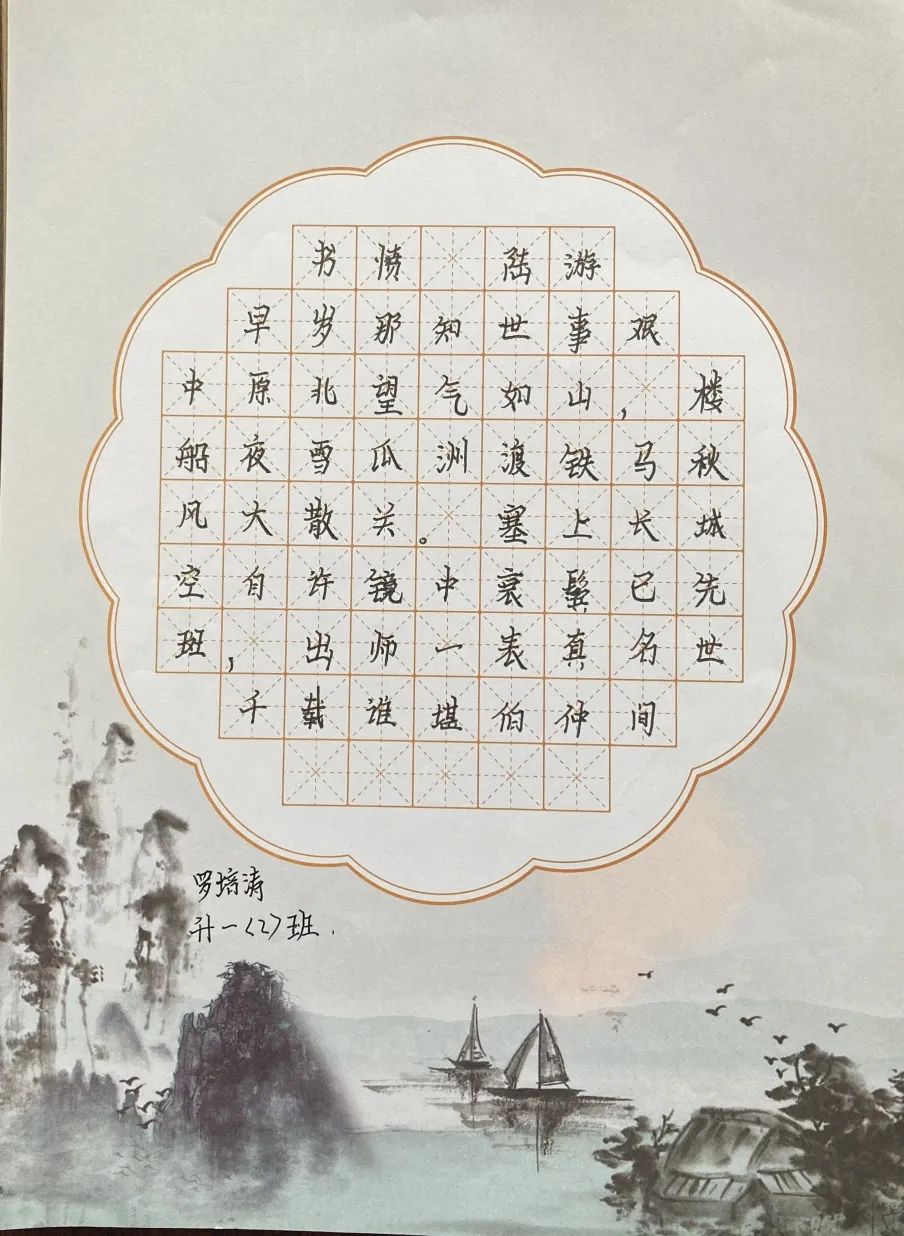 书愤 陆游
早岁那知世事艰
中原北望气如山，楼
船夜雪瓜洲渡铁马秋
风大散关。塞上长城
空自许镜中衰鬓已先
班，出师一表真名世
千载谁堪伯仲间
罗培涛
升一〈2〉班.